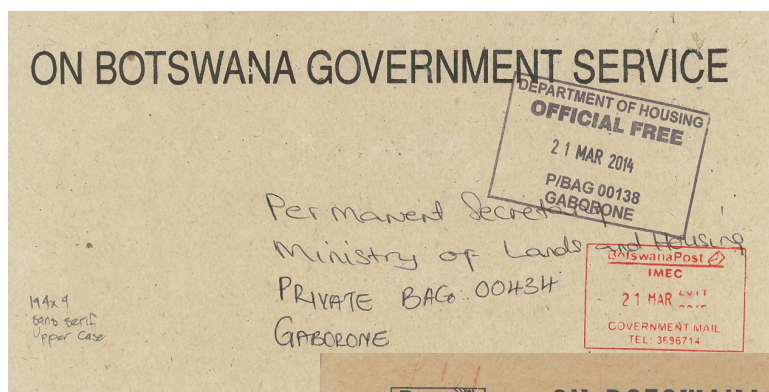 ON BOTSWANA GOVERNMENT SERVICE
DEPARTMENT OF HOUSING
OFFICIAL FREE
21 MAR 2014
P/BAG 00138
GABORONE
Permanent Secretary
Ministry of Lands and Housing
PRIVATE BAG 00434
GABORONE
BotswanaPost
IMEC
21 MAR
GOVERNMENT MAIL
TEL: 3696714
194x9
sans serif
Upper Case
ON BOTSWANA